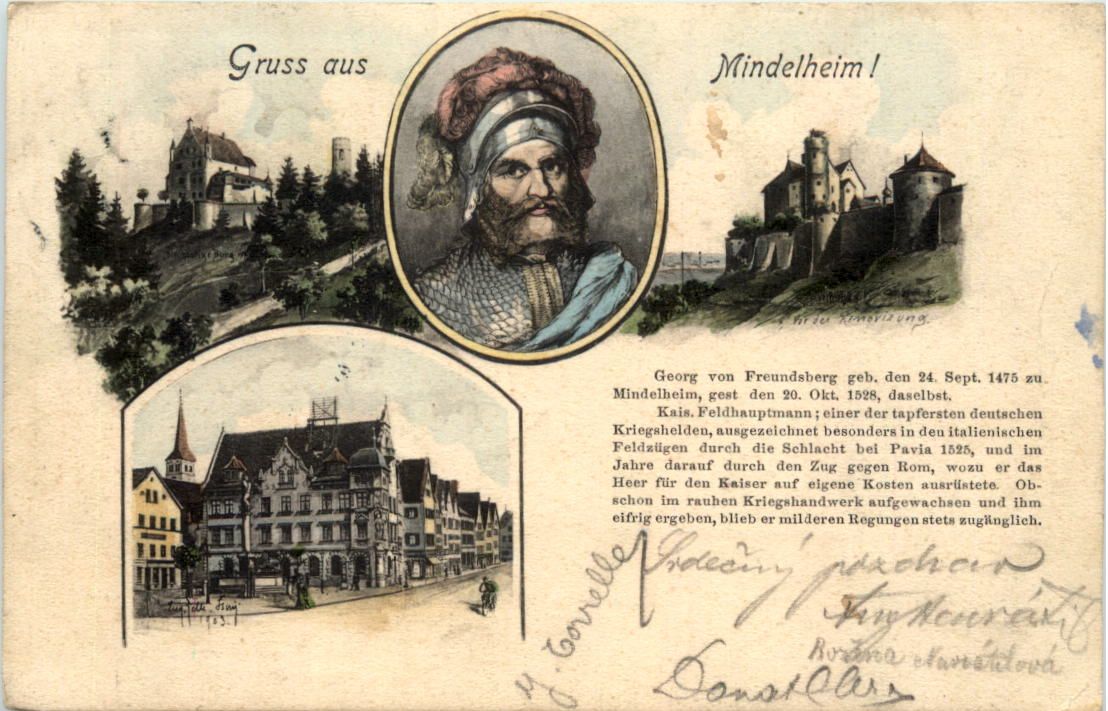 Gruss aus
Mindelheim!
vor der Renovirung.
Georg von Freundsberg geb. den 24. Sept. 1475 zu
Mindelheim, gest den 20. Okt. 1528, daselbst.
Kais. Feldhauptmann; einer der tapfersten deutschen
Kriegshelden, ausgezeichnet besonders in den italienischen
Feldzügen durch die Schlacht bei Pavia 1525, und im
Jahre darauf durch den Zug gegen Rom, wozu er das
Heer für den Kaiser auf eigene Kosten ausrüstete. Ob-
schon im rauhen Kriegshandwerk aufgewachsen und ihm
eifrig ergeben, blieb er milderen Regungen stets zugänglich.
1903.
Srdečný pozdrav
Růžena Navrátilová
Donat